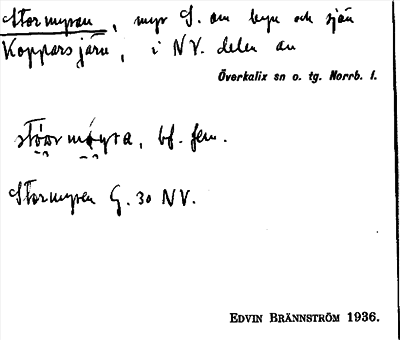 Stormyran, myr S. om byn och sjön
Kopparsjärv, i NV. delen av
Överkalix sn o. tg. Norrb. l.
bf. fem.
Stormyren G. 30 NV.
EDVIN BRÄNNSTRÖM 1936.